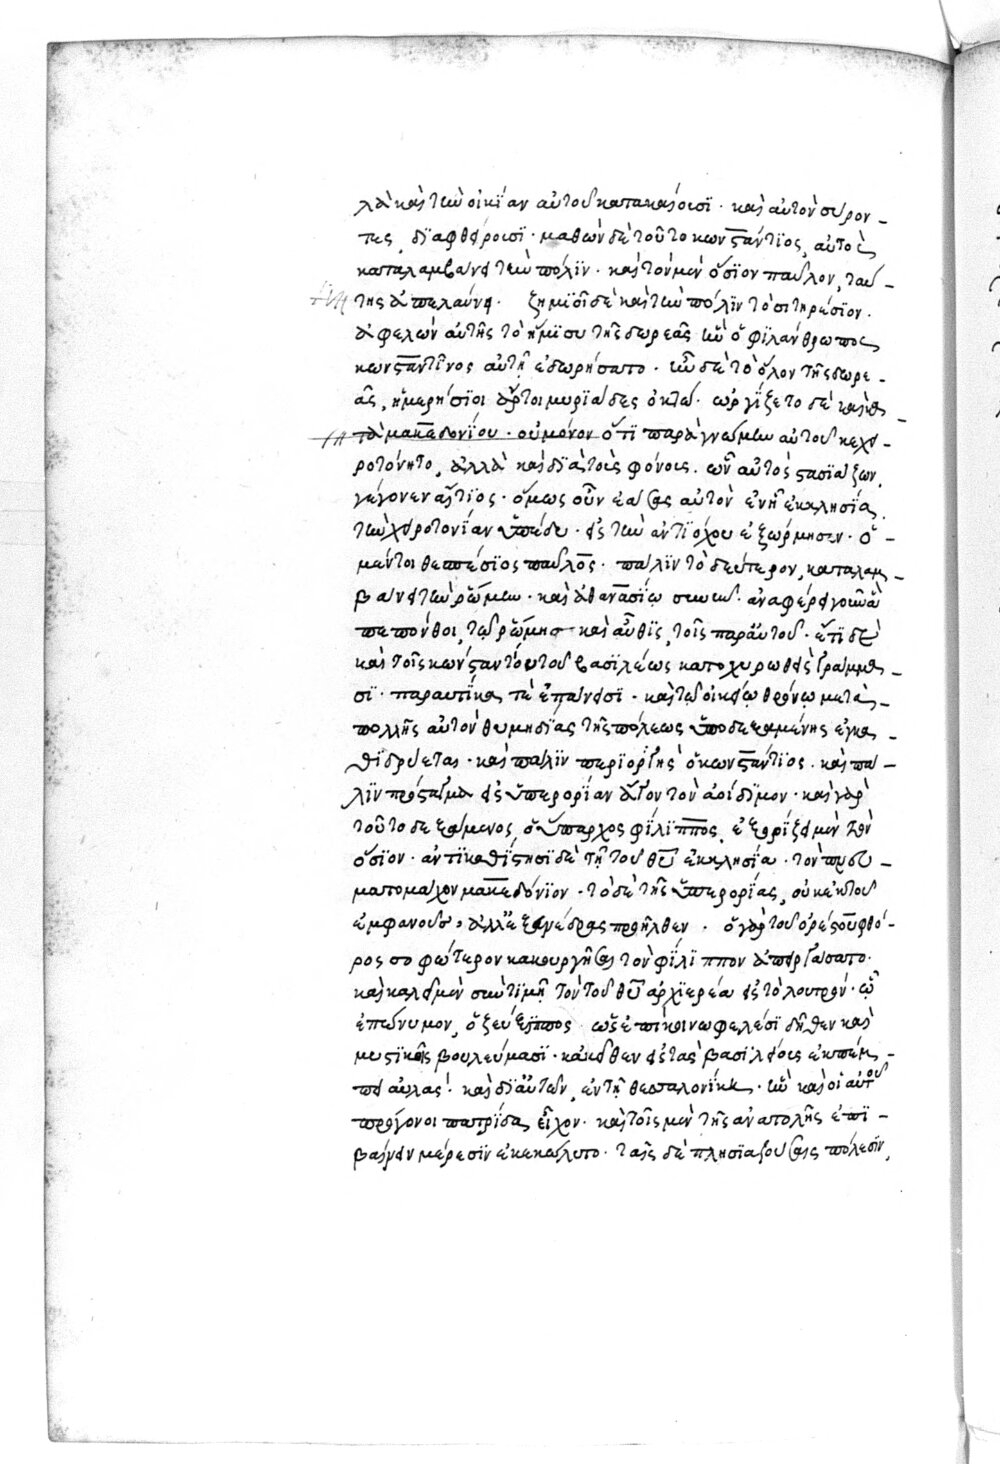 λὰ καὶ τὴν οἰκΐαν αὐτοῦ κατακαίουσϊ · καὶ αὐτὸν σύρον-
τες, δϊαφθείρουσϊ · μαθὼν δὲ τοῦτο κωνστάντϊος, αὐτὸς
καταλαμβάνει τὴν πόλϊν · καὶ τὸν μὲν ὅσϊον παῦλον, ταύ-
της ἀπελαύνει · ζημϊοῖ δὲ καὶ τὴν πόλϊν τὸ σιτηρέσϊον ·
ἀφελὼν αὐτῆς τὸ ἥμϊσυ τῆς δωρεᾶς ἣν ὁ φϊλάνθρωπος
κωνσταντῖνος αὐτῇ ἐδωρήσατο · ἦν δὲ τὸ ὅλον τῆς δωρε-
ᾶς, ἡμερήσϊοι ἄρτοι μυρϊάδες ὀκτώ · ὠργΐζετο δὲ καὶ κα-
τὰ μακεδονίου · οὐ μόνον ὅτϊ παρὰ γνώμην αὐτοῦ κεχει-
ροτόνητο, ἀλλὰ καὶ δϊὰ τοὺς φόνους · ὧν αὐτὸς στασϊάζων,
γέγονεν αἴτϊος · ὅμως οὖν ἐάσας αὐτὸν ἐν ᾗ ἐκκλησΐᾳ
τὴν χειροτονΐαν ὑπέδυ · εἰς τὴν ἀντϊόχου ἐξώρμησεν · ὁ
μέντοι θεσπέσϊος παῦλος · πάλϊν τὸ δεύτερον, καταλαμ-
βάνει τὴν ῥώμην · καὶ ἀθανασΐῳ συνὼν · ἀναφέρει γοῦν ἃ
πεπόνθοι, τῷ ῥώμης καὶ αὖθϊς, τοῖς παρ' αὐτοῦ · ἔτϊ δὲ
καὶ τοῖς κωνσταντος τοῦ βασϊλέως κατοχυρωθεὶς γράμμα-
σϊ · παραυτΐκα τὲ ἐπάνεισϊ · καὶ τῷ οἰκείῳ θρόνῳ μετὰ
πολλῆς αὐτὸν θυμηδΐας τῆς πόλεως ὑποδεξαμένης ἐγκα-
θϊδρύεται · καὶ πάλϊν περϊοργὴς ὁ κωνστάντϊος · καὶ πά-
λϊν πρόσταγμα εἰς ὑπερορίαν ἄγον τὸν ἀοίδϊμον · καὶ γὰρ
τοῦτο δεξάμενος, ὁ ὕπαρχος φίλϊππος, ἐξορΐζει μὲν τὸν
ὅσϊον · ἀντϊκαθΐστησϊ δὲ τῇ τοῦ θῦ ἐκκλησΐᾳ · τὸν πνευ-
ματομάχον μακεδόνϊον · τὸ δὲ τῆς ὑπερορίας, οὐκ ἐκ τοῦ
ἐμφανοῦς, ἀλλ' ἐξ ἐνέδρας προῆλθεν · ὁ γὰρ τοῦ ὀρέστου φθό-
ρος σοφώτερον κακουργῆσαι τὸν φίλϊππον ἀπειργάσατο ·
καὶ καλεῖ μὲν σὺν τϊμῇ τὸν τοῦ θῦ ἀρχϊερέα εἰς τὸ λουτρόν · ᾧ
ἐπώνυμον, ὁ ζεύξϊππος · ὡς ἐπὶ κοινωφελέσϊ δῆθεν καὶ
μυστϊκοῖς βουλεύμασϊ · κἀκεῖθεν εἰς τὰς βασϊλείους ἐκπέμ-
πει αὐλάς · καὶ δϊ' αὐτῶν, ἐν τῇ θεσσαλονΐκῃ · ἣν καὶ οἱ αὐτοῦ
πρόγονοι πατρΐδα, εἶχον · καὶ τοῖς μὲν τῆς ἀνατολῆς ἐπϊ-
βαίνειν μέρεσϊν ἐκεκώλυτο · ταῖς δὲ πλησϊαζούσαις πόλεσϊν,